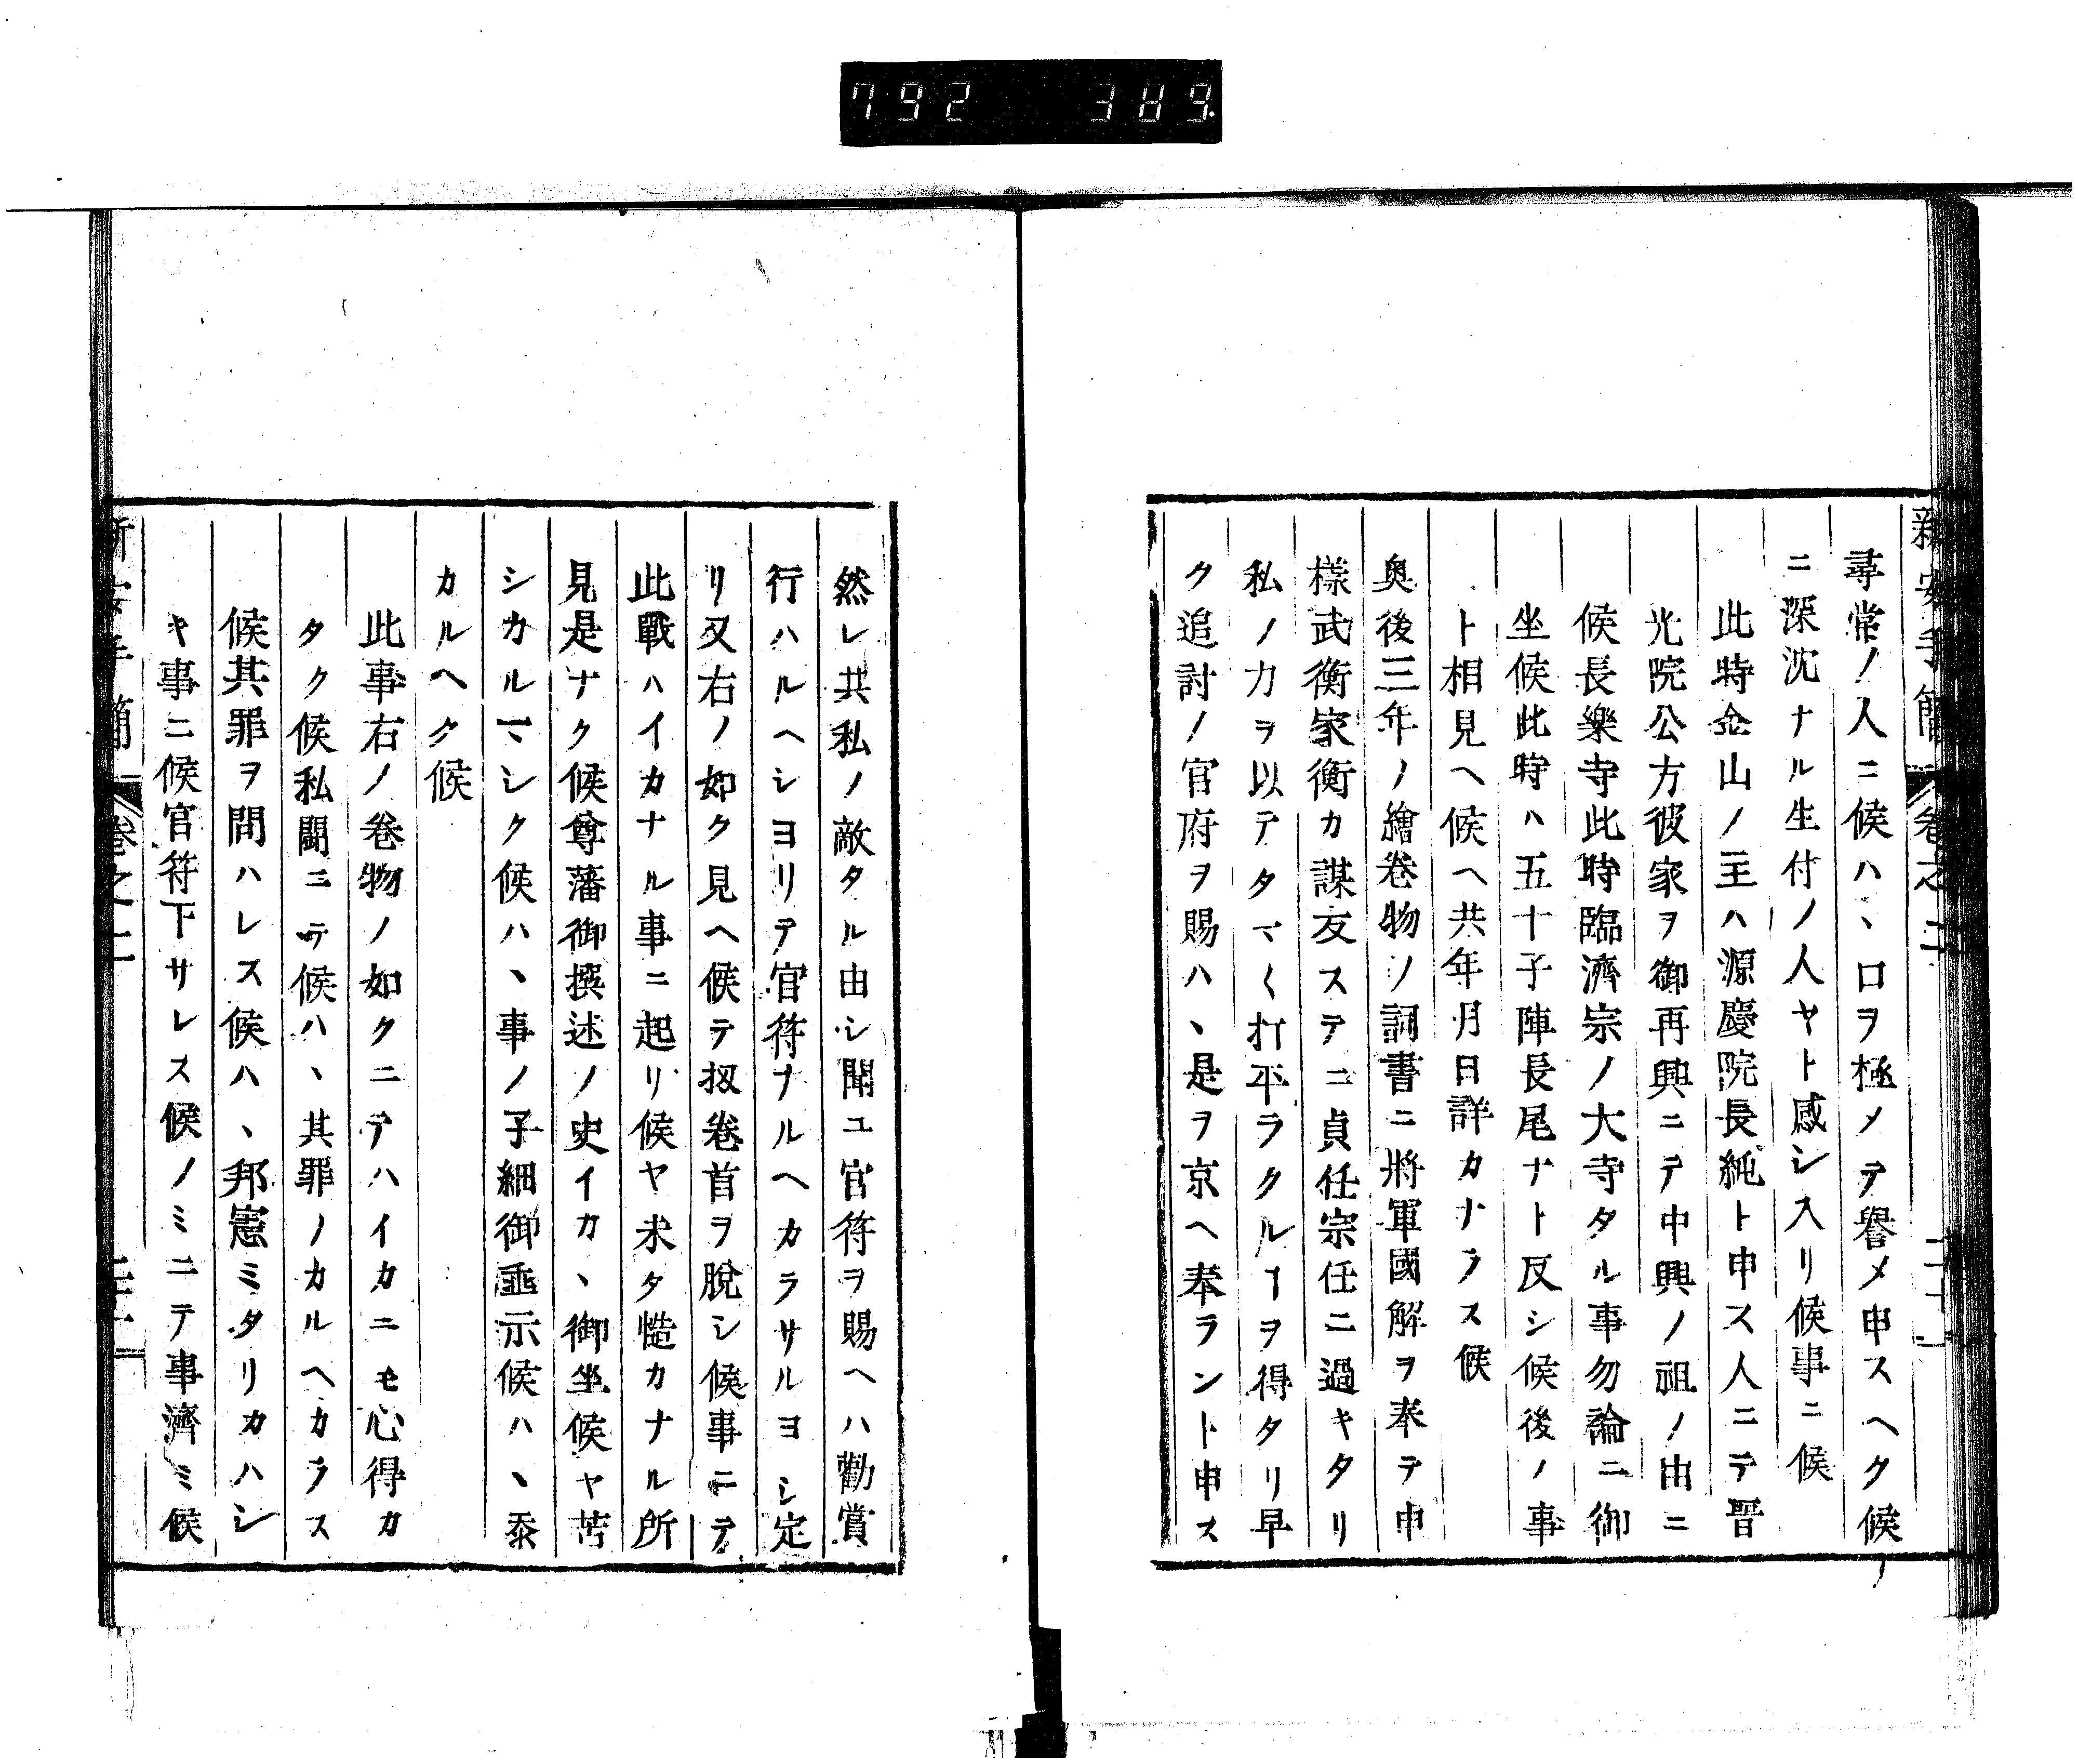 792 389
新安手簡 卷之二 二十一
尋常ノ人ニ候ハヽ口ヲ極メテ譽メ申スヘク候
ニ深沈ナル生付ノ人ヤト感シ入リ候事ニ候
此時金山ノ主ハ源慶院長純ト申ス人ニテ晋
光院公方彼家ヲ御再興ニテ中興ノ祖ノ由ニ
候長樂寺此時臨濟宗ノ大寺タル事勿論ニ御
坐候此時ハ五十子陣長尾ナト反シ候後ノ事
ト相見ヘ候ヘ共年月日詳カナラス候
奥後三年ノ繪卷物ノ詞書ニ將軍國解ヲ奉テ申
樣武衡家衡カ謀反ステニ貞任宗任ニ過キタリ
私ノ力ヲ以テタマ〱打平ラクルヿヲ得タリ早
ク追討ノ官府ヲ賜ハヽ是ヲ京ヘ奉ラント申ス
然レ共私ノ敵タル由シ聞ユ官符ヲ賜ヘハ勸賞
行ハルヘシヨリテ官符ナルヘカラサルヨシ定
リ又右ノ如ク見ヘ候テ扨卷首ヲ脫シ候事ニテ
此戰ハイカナル事ニ起リ候ヤ未タ慥カナル所
見是ナク候尊藩御撰述ノ史イカヽ御坐候ヤ苦
シカルマシク候ハヽ事ノ子細御垂示候ハヽ忝
カルヘク候
此事右ノ卷物ノ如クニテハイカニモ心得カ
タク候私鬪ニテ候ハヽ其罪ノカルヘカラス
候其罪ヲ問ハレス候ハヽ邦憲ミタリカハシ
キ事ニ候官符下サレス候ノミニテ事濟ミ候
新安手簡 卷之二